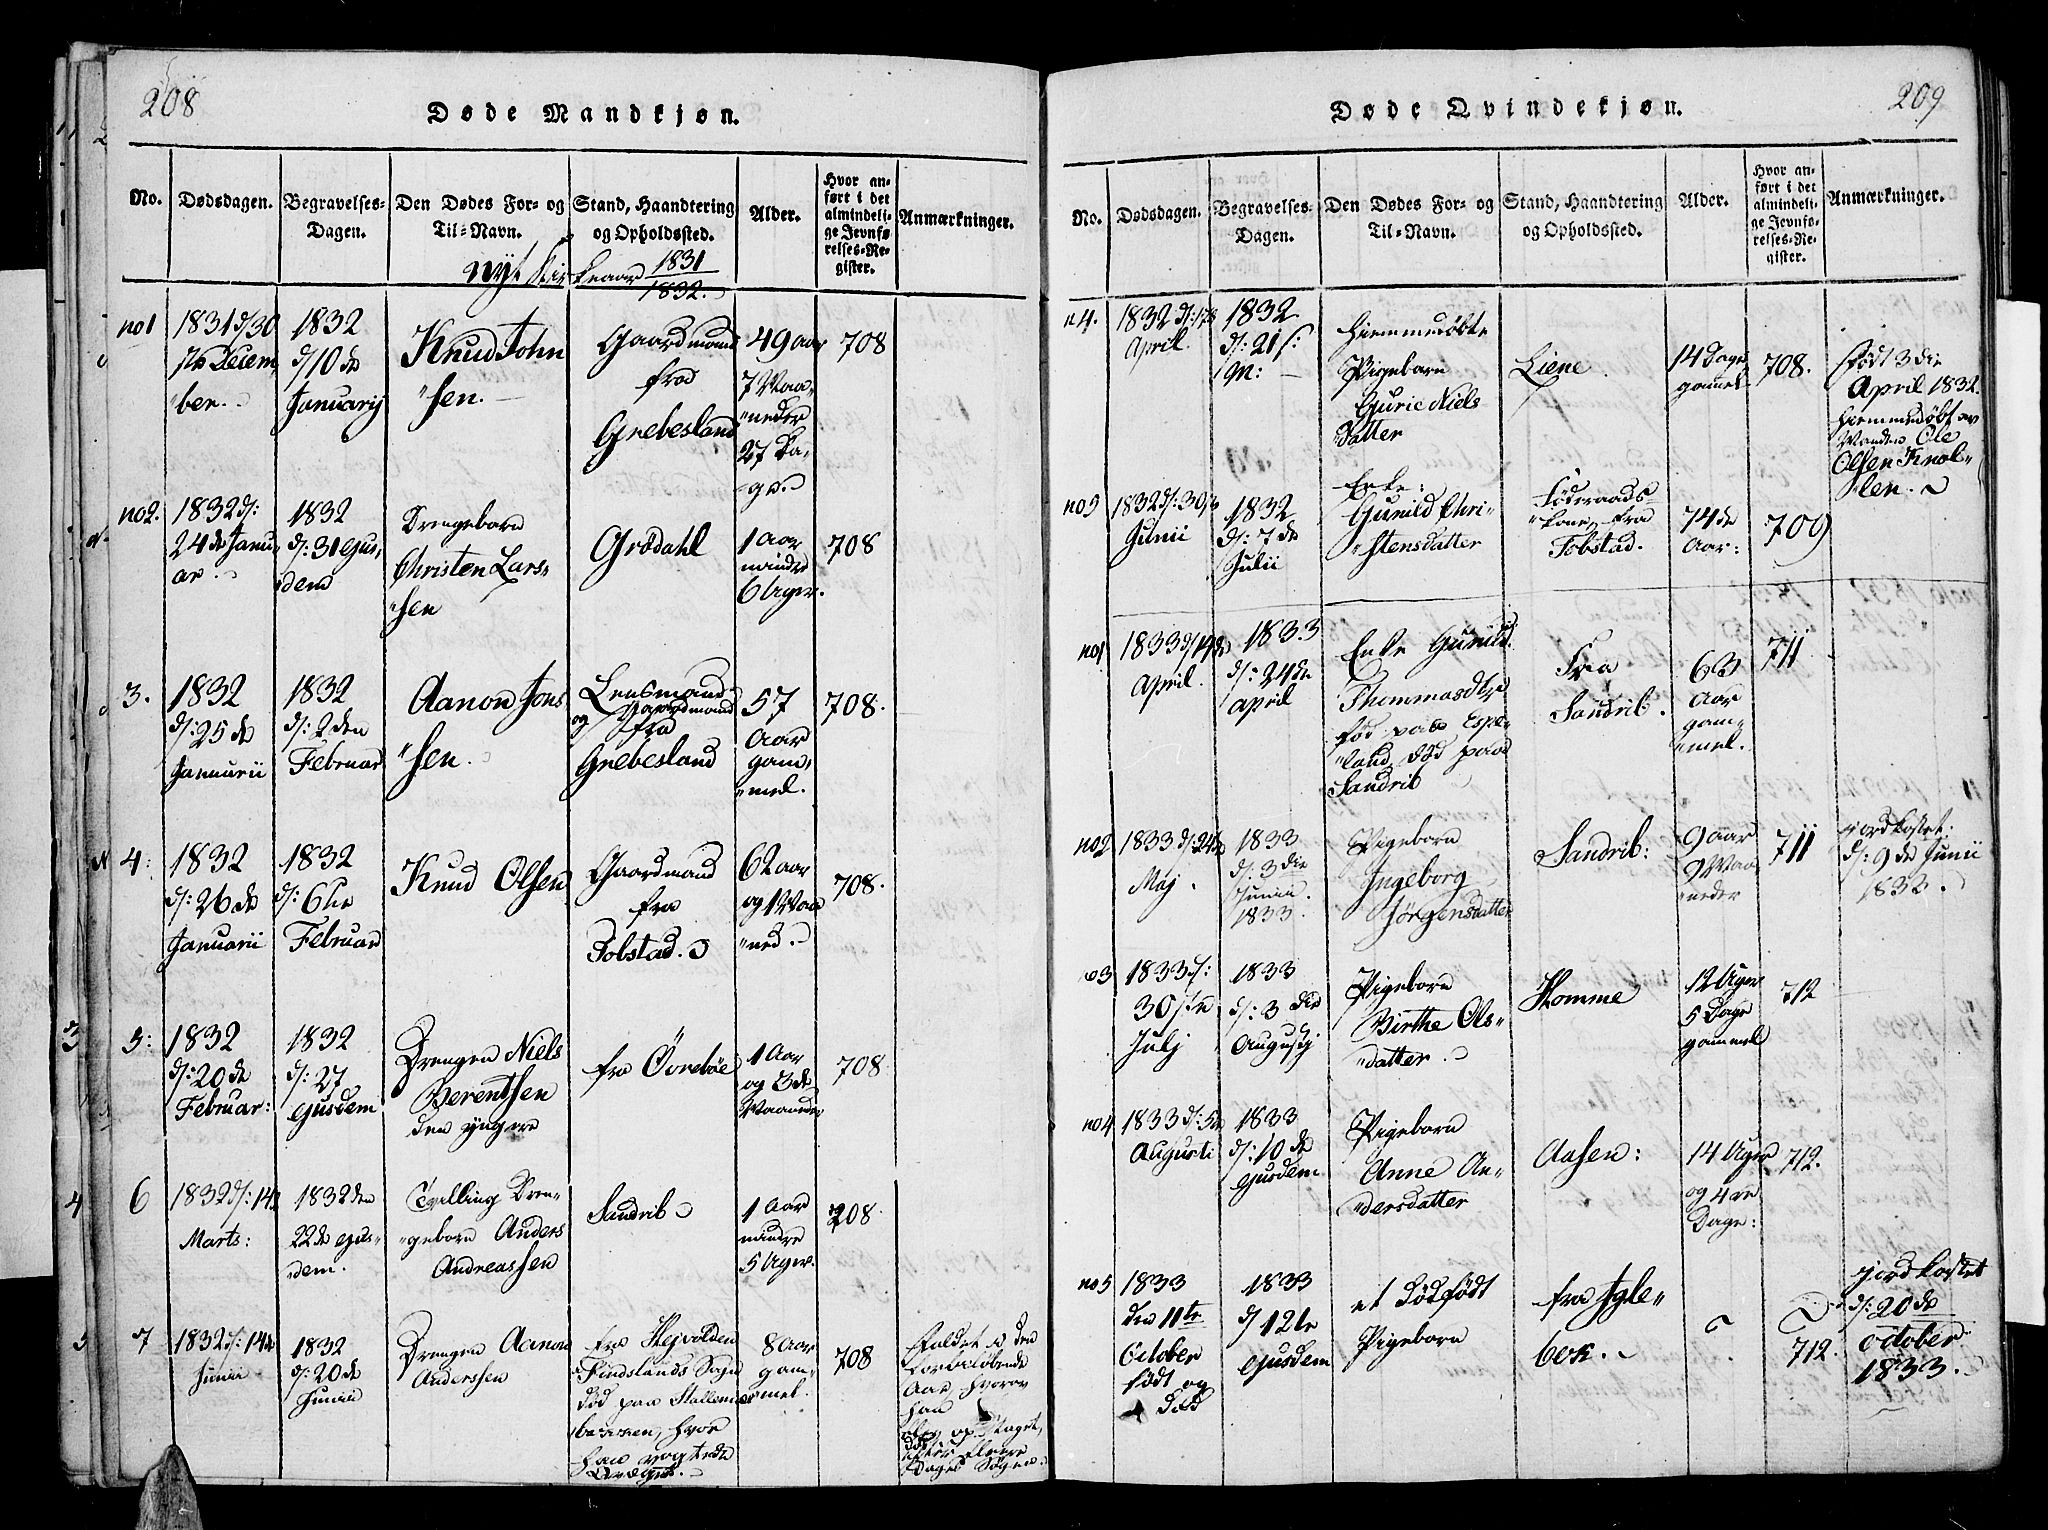 208
Døde Mandkjøn.
No.
Dødsdagen.
Begravelses-
Dagen.
Den Dødes For- og
Til-Navn.
Stand, Haandtering
og Opholdssted.
Alder.
Hvor an-
ført i det
almindeli-
ge Jevnfø-
relses-Re-
gister.
Anmærkninger.
nyt Kirkeaar 1831
1832.
no1
1831 d/30
ste Decem
ber.
1832
d/10 de
Januarij
Knud John
sen.
Gaardmand
fra
Grebesland
49 aar
7 Maa-
neder
27 Da-
ge.
708
no2.
1832 d:
24 de Janu-
ar.
1832
d: 31 ejus-
dem
Drengebarn
Christen Lars-
sen
Grødahl
1 Aar
mindre
6 Uger.
708
3.
1832
d: 25 de
Januarii
1832
d: 2 den
Februar
Aanon Jons
sen.
Lensmand
og Gaardmand
fra
Grebesland
57
Aar
gam-
mel.
708.
4:
1832
d: 26 de
Januarii
1832
d: 6te
Februar
Knud Olsen
Gaardmand
fra
Tobstad.
62 aar
og 1 Maa
ned.
708.
5:
1832
d: 20 de
Februar:
1832
d: 27
ejusdem
Drengen Niels
Berentsen
den yngere
fra Øvrebøe
1 Aar
og 3 de
Maaneder
708
6
1832 d: 14de
Marts:
1832 den
22 de ejus-
dem.
Tvilling Dren-
gebarn Anders
Andreassen
Sandrib
1 Aar
mindre
5 Uger.
708
7
1832 d: 14de
Junii
1832
d: 20 de
Junii
Drengen Aanon
Anderssen
fra Hejvolden
Findslands Sogn
død paa Stallemoe
heven, hvor
han vogtede
Creature.
8 Aar
gam-
mel.
708
Faldet i den
forbiløbende
Aae, hvorav
han
blev optaget,
død
efter flere
Dages Søgen.
209
Døde Qvindekjøn.
No.
Dødsdagen.
Begravelses-
Dagen.
Den Dødes For- og
Til-Navn.
Stand, Haandtering
og Opholdssted.
Alder.
Hvor an-
ført i det
almindeli-
ge Jevnfø-
relses-Re-
gister.
Anmærkninger.
n4.
1832 d: 17de
April
1832
d: 21 s:
M:
Hjemmedøbte
Pigebarn
Gurie Niels
datter
Liene
14 Dage
gammel
708.
født 3 die
April 1832.
Hjemmedøbt av
Manden Ole
Olsen Knol-
len.
no5
1832 d: 30te
Junii
1832
d: 7 de
Julii
Enke:
Gunild Chri-
stensdatter
Føderaads
kone fra
Tobstad.
74 de
Aar:
709
no1
1833 d/19de
April.
1833
d: 24de
april
Enke Gunild
Thommasdtr
fød paa Espe-
land død paa
Sandrib
Fra
Sandrib.
63
Aar
gam-
mel.
711
no2
1833 d: 24de
Maj.
1833
d: 3 die
Junii.
1833.
Pigebarn
Ingeborg
Jørgensdatter
Sandrib:
9 aar
9 Maa
neder
711
jordkastet:
d: 9 de Junii
1833.
o3
1833 d:
30 ste
Julj
1833
d: 3 die
Augustj
Pigebarn
Birthe Ols-
datter.
Homme
12 Uger
5 Dage
gammel
712
no4
1833 d: 5te
Augusti
1833
d: 10 de
ejusdem
Pigebarn
Anne An-
dersdatter
Aasen:
14 Uger
og 4 re
Dage:
712.
no5
1833
den 11te
October
født og
død
1833
d/ 12te
ejusdem
et dødfødt
Pigebarn
fra Igle-
bek.
712.
jordkastet
d: 20 de
October
1833.